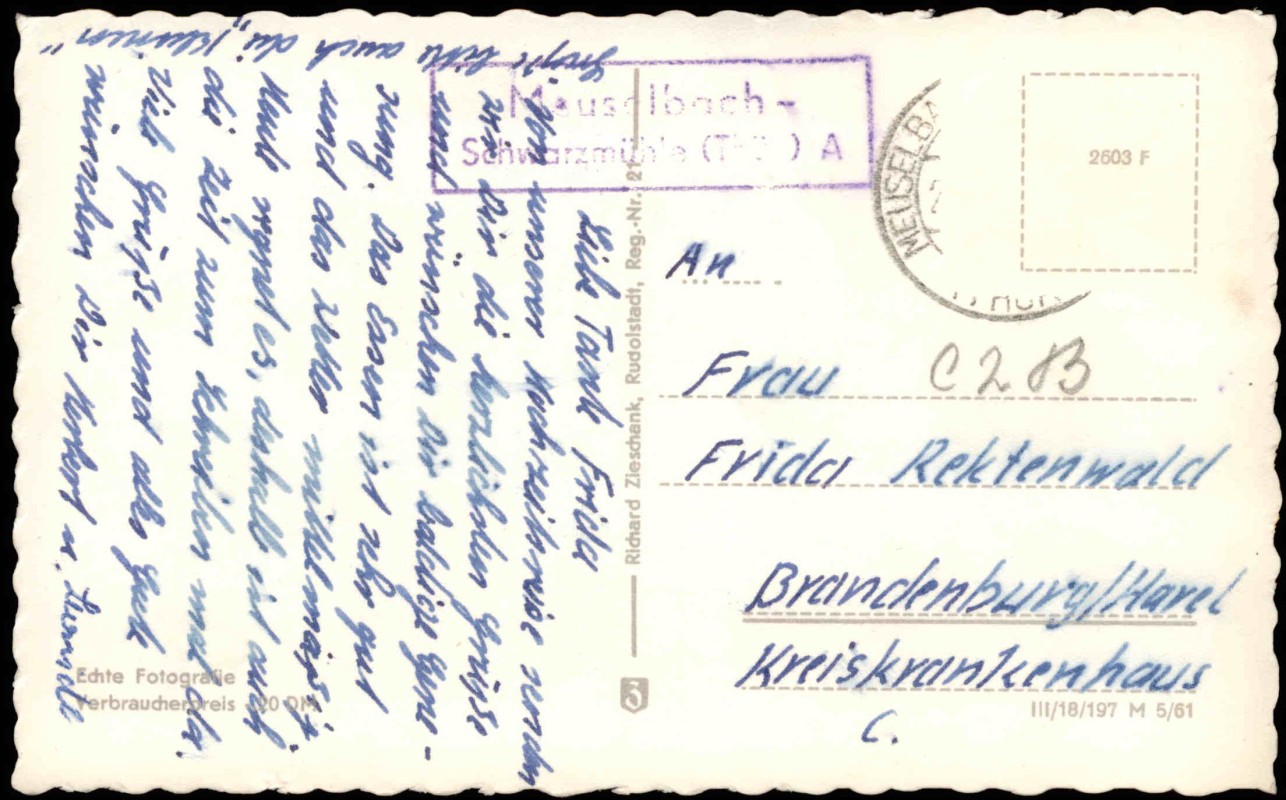 Liebe Tante Frida
Von unserer Hochzeitsreise senden
wir Dir die herzlichsten Grüsse
und wünschen Dir baldige Gene-
sung. Das Essen ist sehr gut
und das Wetter mittelmässig.
Heute regnet es, deshalb ist auch
die Zeit zum Schreiben mal da.
Viele Grüsse und alles Gute
wünschen Dir Herbert u.
Grüße bitte auch die „kleinen“
Meuselbach-
Schwarzmühle (Thür) A
MEUSELBA
2603 F
An
Frau
C2 B
Frida Rektenwald
Brandenburg/Havel
Kreiskrankenhaus
C.
Richard Zieschank, Rudolstadt, Reg.-Nr. 21
Echte Fotografie
Verbraucherpreis -,20 DM
3
III/18/197 M 5/61